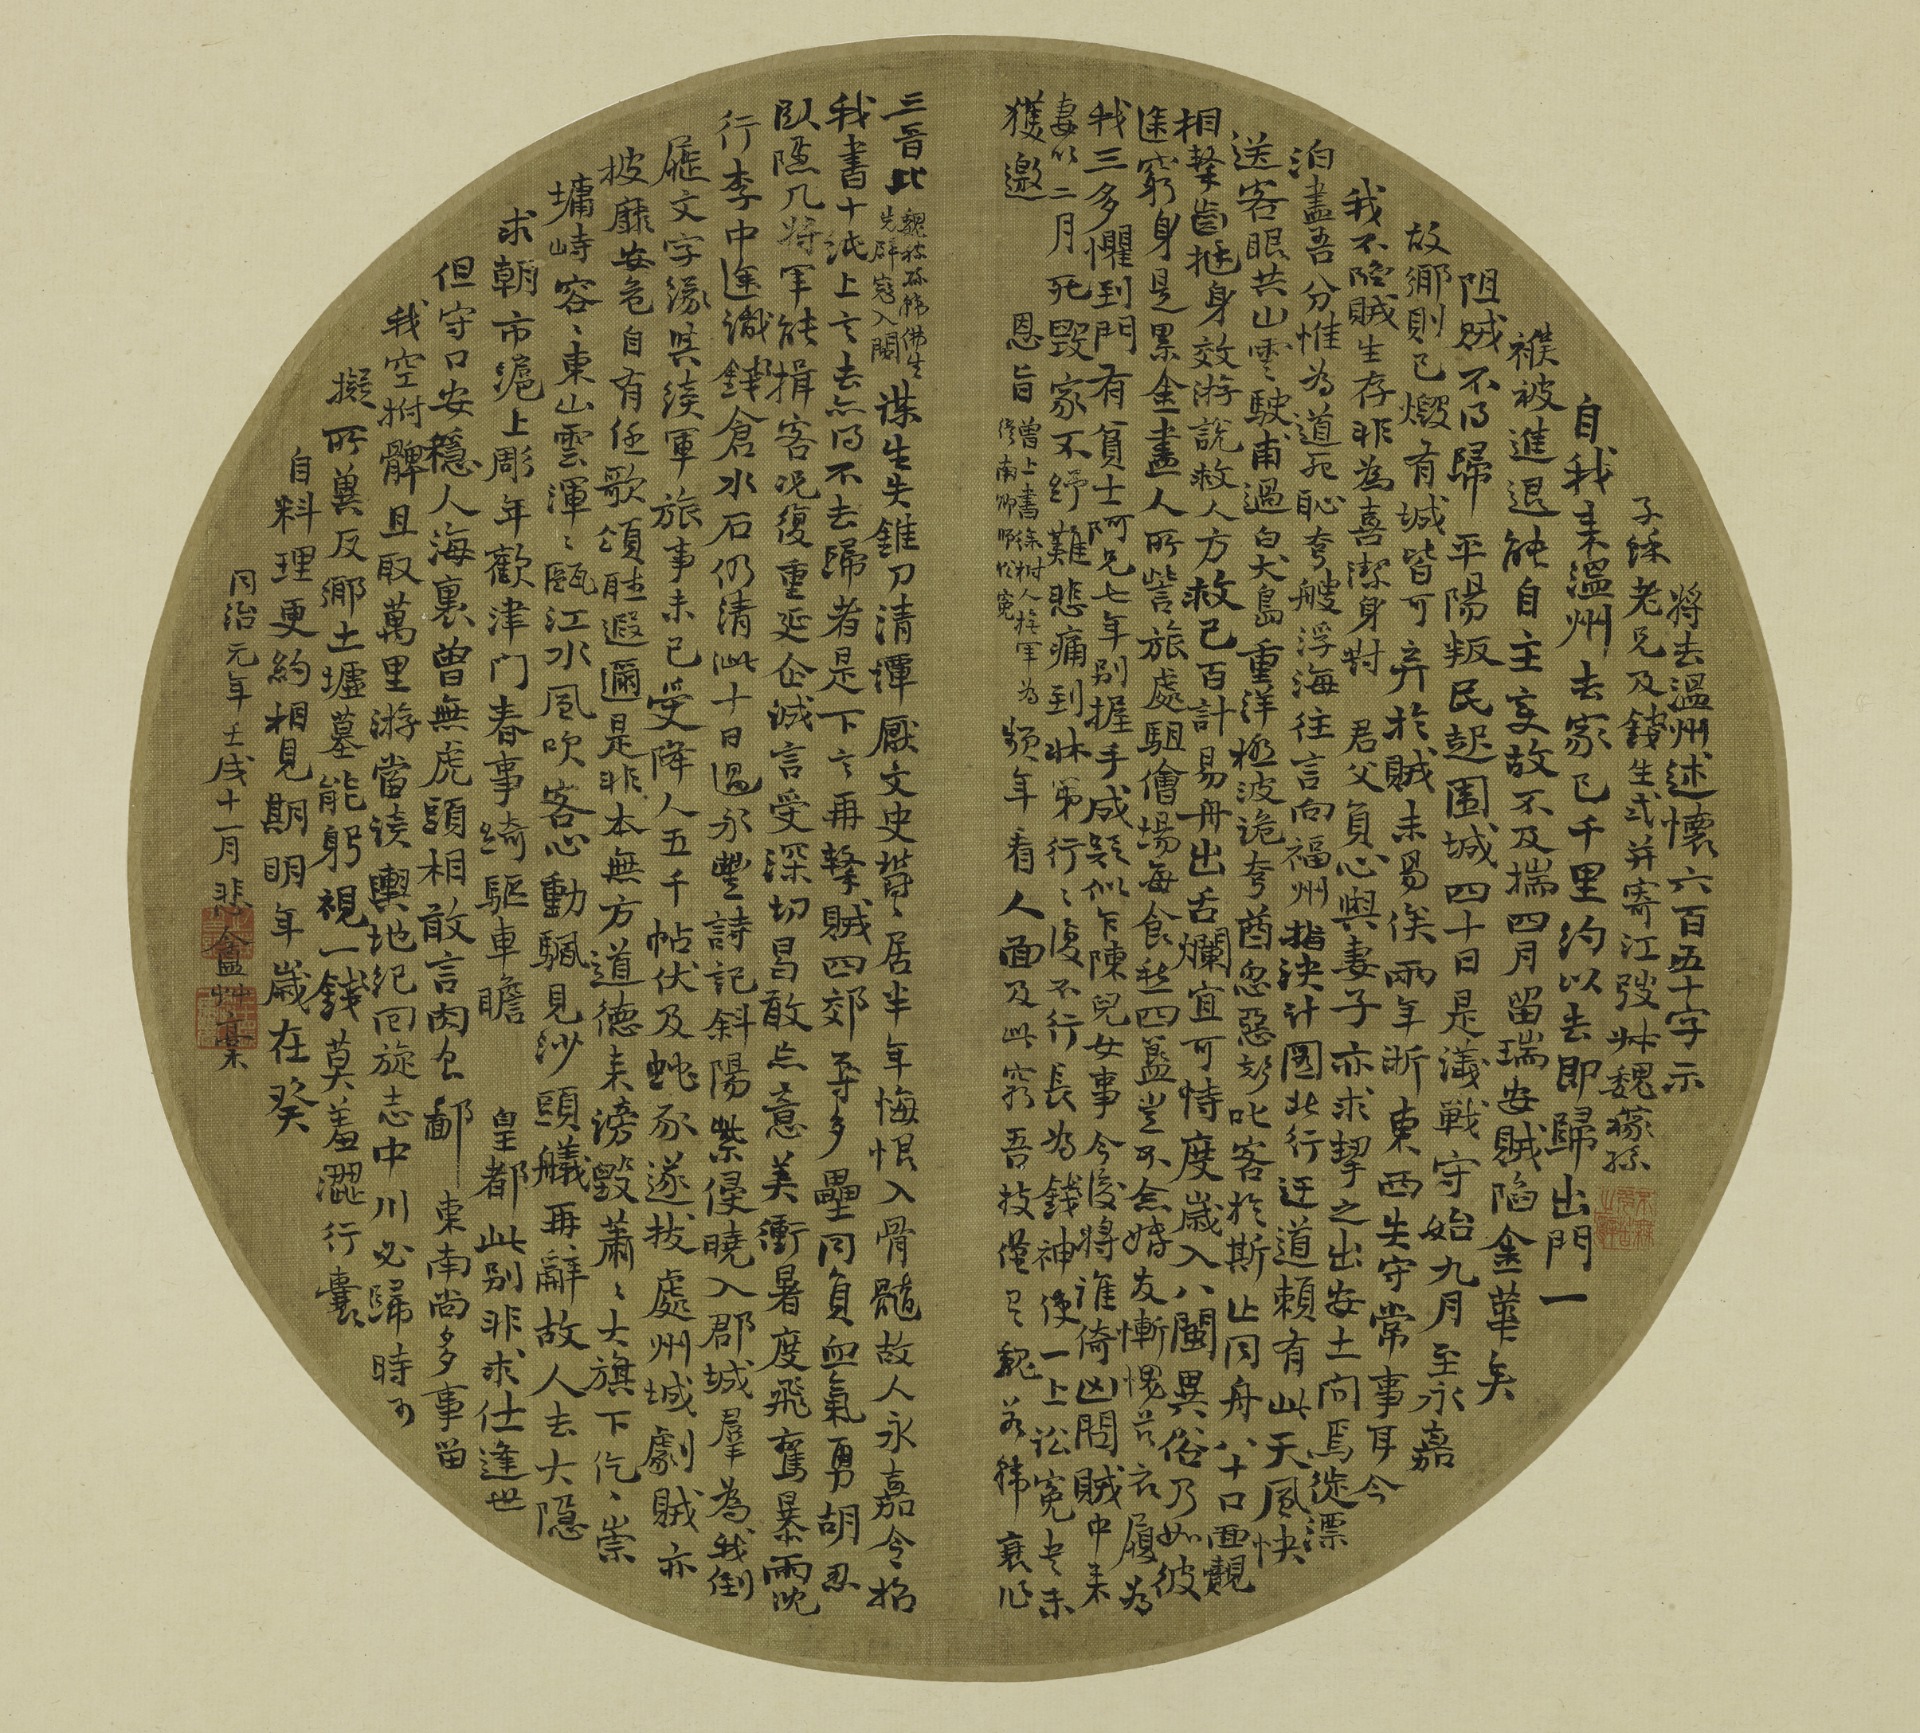 將去溫州述懷六百五十字示
子穌老兄及錢生式并寄江弢叔魏稼孫
自我來溫州去家已千里約以去即歸出門一
襆被進退能自主変故不及揣四月留瑞安賊陷金華矣
阻賊不得歸平陽叛民起圍城四十日是議戰守始九月至永嘉
故鄉則已燬有城皆可弃於賊未易俟兩年浙東西失守常事耳今
我不陷賊生存非為喜潔身對君父負心與妻子亦求挈之出安土向焉徙漂
泊盡吾分惟為道死恥夸艘浮海往言向福州指決計圖北行迂道賴有此天風快
送客眼共山雲駛甫過白犬島重洋極波詭夸酋忽惡彭叱客於斯止同舟八十口面覩
相擊齒挺身效游說救人方救己百計易舟出舌爛宜可恃度歲入八閩異俗乃如彼
途窮身是累金盡人所訾旅處駔儈場每食愁四簋豈不念婚友慚惧苦衣履為
我三多懼到門有貧士阿兄七年別握手成疑似乍陳兒女事今後將誰倚凶問賊中來
妻以二月死毀家不紓難悲痛到牀第行行復不行長為錢神使一上訟冤書未
獲邀恩旨曾上書徐樹人撫軍為繆南卿師訟冤頻年看人面及此窮吾技僅巳魏若韓衰心
三晉此魏稼孫韓佛生先辟寇入閩謀生失錐刀清譚厭文史鬱鬱居半年悔恨入骨髓故人永嘉令招
我書十紙上言去亦得不去歸者是下言再擊賊四郊尋多壘同負血氣勇胡忍
臥隱几將軍能揖客況復重延企誠言受深切曷敢亦意美衝暑度飛鸞暴雨沈
行李中途識錢倉水石仍清泚十日過永豐詩記斜陽紫侵曉入郡城羣為我倒
屣文字緣其淺軍旅事未已受降人五千帖伏及蛇豕遂拔處州城劇賊亦
披靡安危自有任歌頌聽遐邇是非本無方道德來謗毀蕭蕭大旗下仡仡崇
墉峙容容東山雲渾渾甌江水風吹客心動颿見沙頭艤再辭故人去大隱
求朝市滬上彫年歡津門春事綺驅車瞻皇都此別非求仕逢世
但守口安穩人海裏曾無虎頭相敢言肉食鄙東南尚多事留
我空拊髀且取萬里游當讀輿地紀回旋志中川必歸時可
擬所冀反鄉土墟墓能躬視一錢莫羞澀行囊
自料理更約相見期明年歲在癸
同治元年壬戌十一月悲盦艸稾